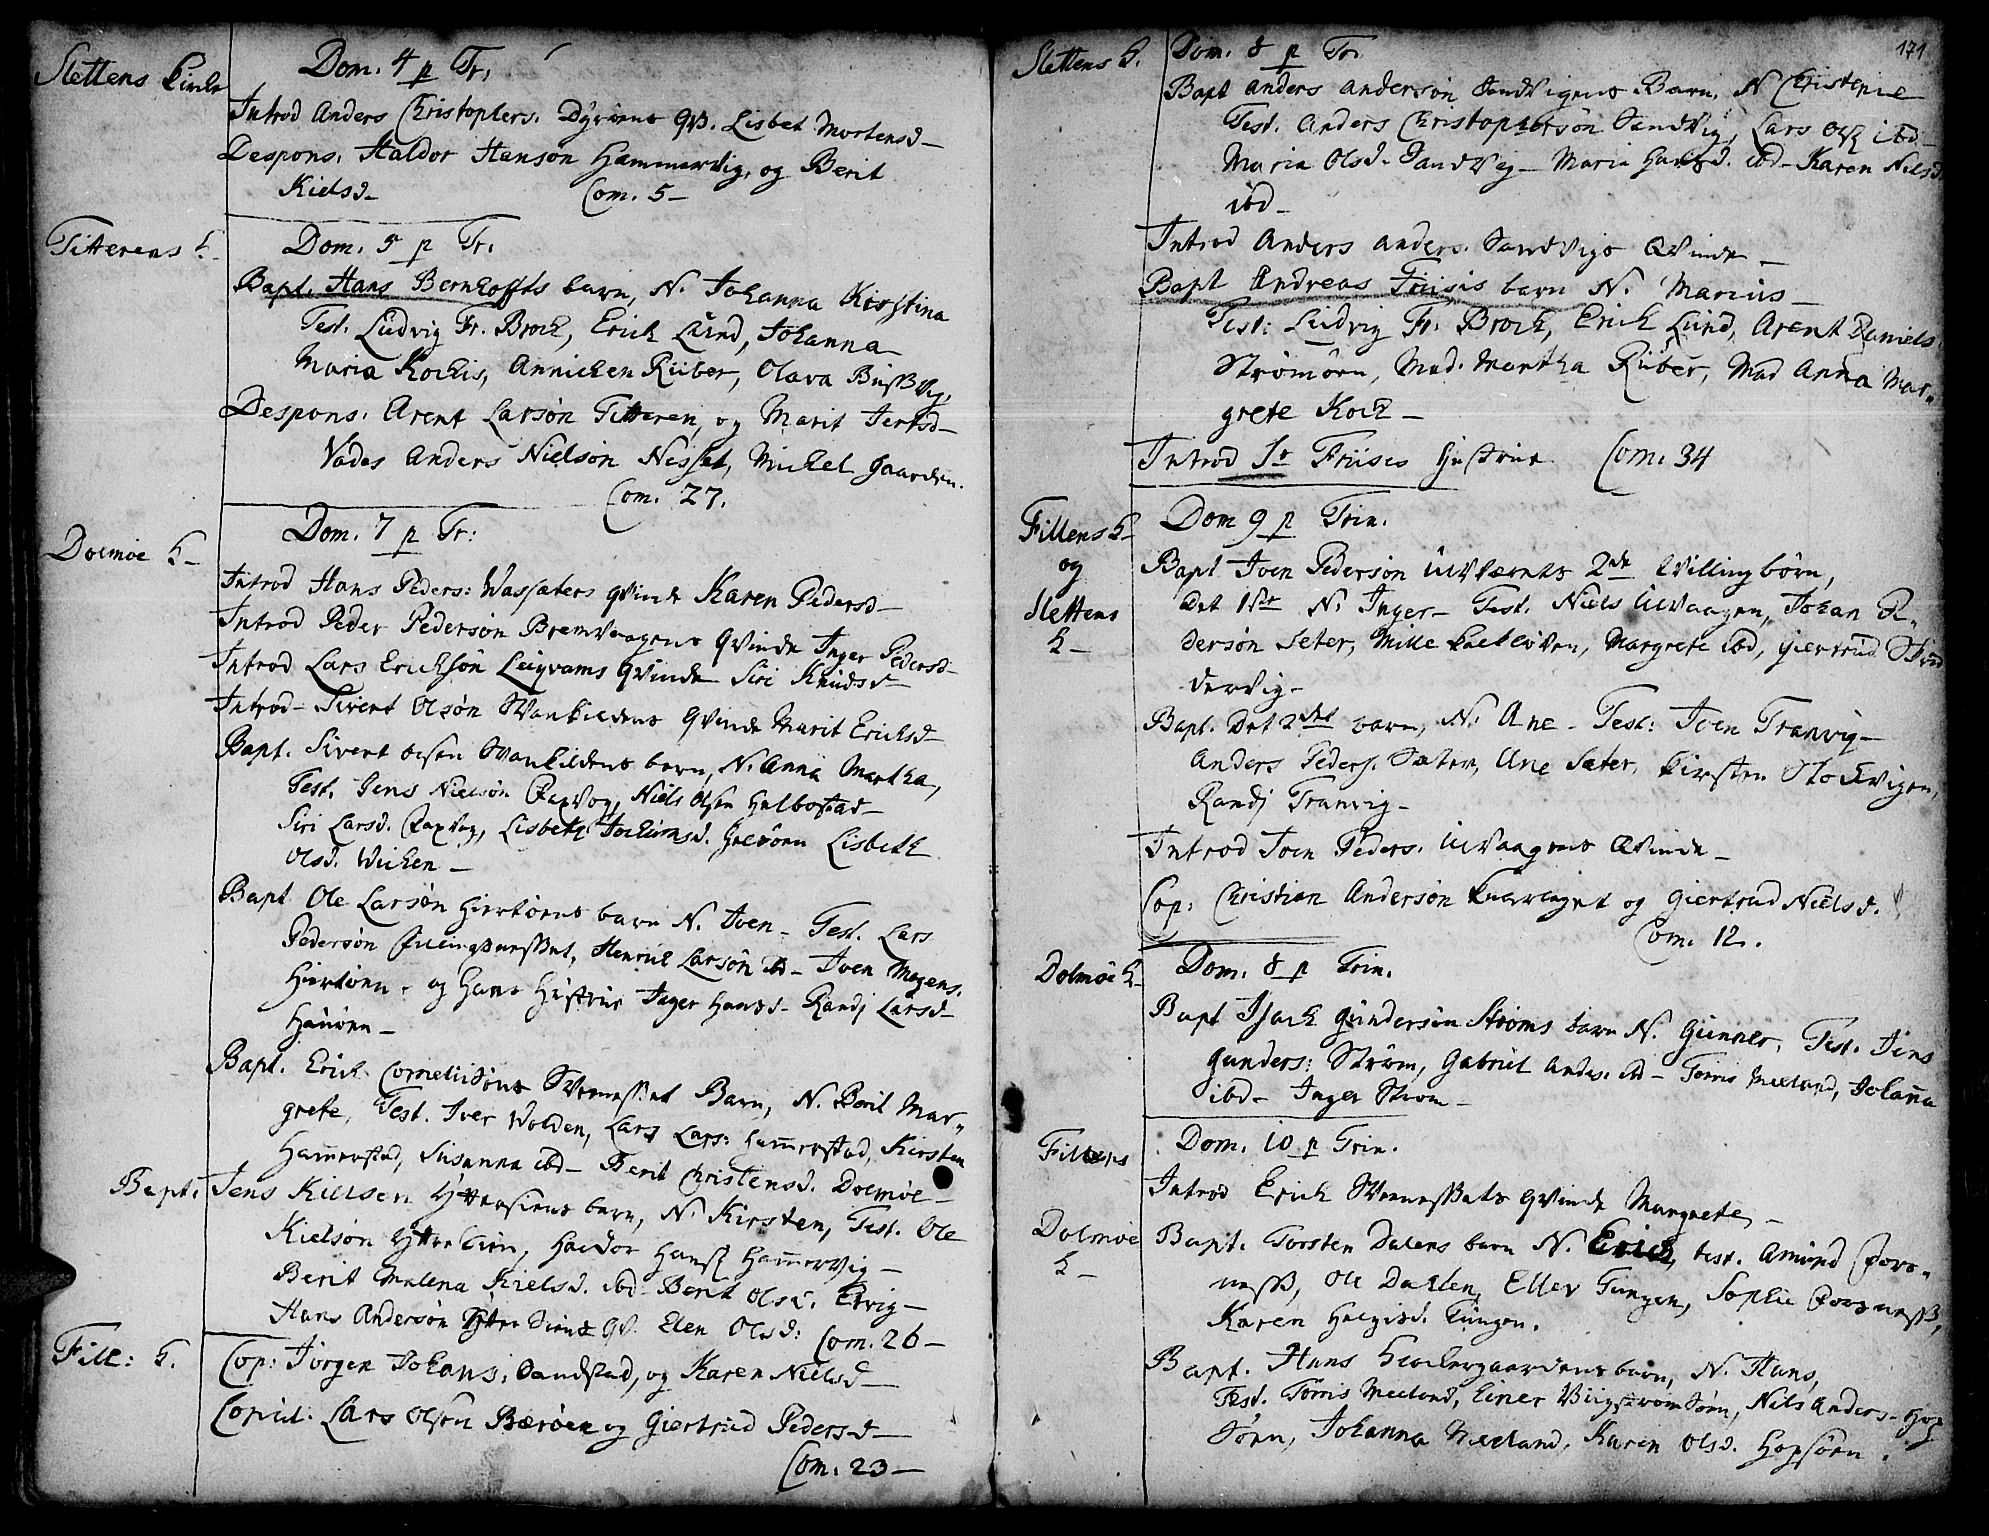 Slettens Kirke
Dom. 4 p Tr.
Introd Anders Christophers. Dyrøens qv. Lisbet Mortensd
Despons. Haldor Hansøn Hammervig, og Berit
Kielsd Com. 5
Titterens K.
Dom. 5 p Tr.
Bapt. Hans Bernhoffts barn, N. Johanna Kirstina
Test. Ludvig Fr. Broch, Erich Lund, Johanna
Maria Kochis, Annichen Rüber, Olava
Despons. Arent Larsøn Titteren, og Marit Jertsd
Vades Anders Nielsøn Nesset, Michel
Com. 27.
Dolmøe K
Dom. 7 p Tr:
Introd Hans Peders: Wassæters qvinde Karen Pedersd
Introd Peder Pedersøn Bremvaagens qvinde Inger Pedersd
Introd Lars Ericksøn Leiqvams qvinde Siri Knudsd
Introd Sivert Olsøn Svankildens qvinde Marit Ericksd
Bapt. Sivert Olsen Svankildens barn, N. Anna Martha,
Test. Jens Nielsøn Niels Olsen Helbostad
Siri Larsd. Lisbeth Jochumsd. Lisbeth
Olsd. Wichen
Bapt Ole Larsøn Hiertøens barn N. Joen Test. Lars
Pedersøn Henrich Larsøn ibd Joen Mogens.
Hiertøen og hans hustrue Inger Hansd Randj Larsd
Bapt. Erich Corneliisøns barn, N. Berit Mar-
grete, Test. Iver Wolden, Lars Lars: Hammerstad, Kirsten
Hammerstad, Susanna ibd Berit Christensd. Dolmøe
Bapt: Jens Kielsen barn, N. Kirsten, Test. Ole
Kielsøn Haldor Hans Hammervig
Berit Malena Kielsd. ibd Berit Olsd.
Hans Andersøn qv. Elen Olsd: Com. 26
Fill: K.
Cop: Jørgen Johans. Sandstad, og Karen Nielsd
Copul. Lars Olsøn Bærøen og Giertrud Pedersd
Com. 23
171
Slettens K.
Dom. 8 p Tr.
Bapt Anders Andersøn Sandvigens Barn. N Christenie
Test. Anders Christophersøn Sandvig, Lars Ols ibd
Maria Olsd. Sandvig Maria Hansd. ibd Karen Nilsd
ibd
Introd Anders Anders. Sandvigs qvinde
Bapt Andreas Friisis barn N. Marcus
Test: Ludvig Fr. Broch, Erich Lund, Arent Daniels
Strømøen, Mad. Martha Rüber, Mad Anna Mar-
grete Koch
Introd Sr Friises Hustrue Com. 34
Fillens K
og
Slettens
K
Dom 9 p Trin.
Bapt Joen Pedersøn 2de tvilling børn,
Det 1ste N. Inger Test. Niels Ulvaagen, Johan Pe-
dersøn Seter, Mille Margrete ibd, giertrud
dervig
Bapt. Det 2det barn, N. Ane Test: Joen Tranvig
Anders Peders. Sæter, Ane Sæter, Kirsten Stockvigen,
Randj Tranvig
Introd Joen Peders. Ulvaagens qvinde
Cop: Christian Andersøn og Giertrud Nielsd.
Com. 12.
Dolmøe K
Dom. 8 p Trin.
Bapt Isach Gundersøn Strøms barn N. Gunner, Test. Jens
Gunders: Strøm, Gabriel Anders. ibd Tørris Meeland, Johanna
ibd Inger Strøm
Fillens
Dom. 10 p Trin.
Introd Erich qvinde Margrete
Dolmøe
K
Bapt. Torsten Dalens barn N. Erich, test. Amund
Ole Dallen, Ellev Tungen, Sophie
Karen Helgisd. Tungen.
Bapt. Hans barn, N. Hans,
Test. Tørris Meeland, Einer Nils Anders. Hop
Johanna Meeland, Karen Olsd. Hopsøen.